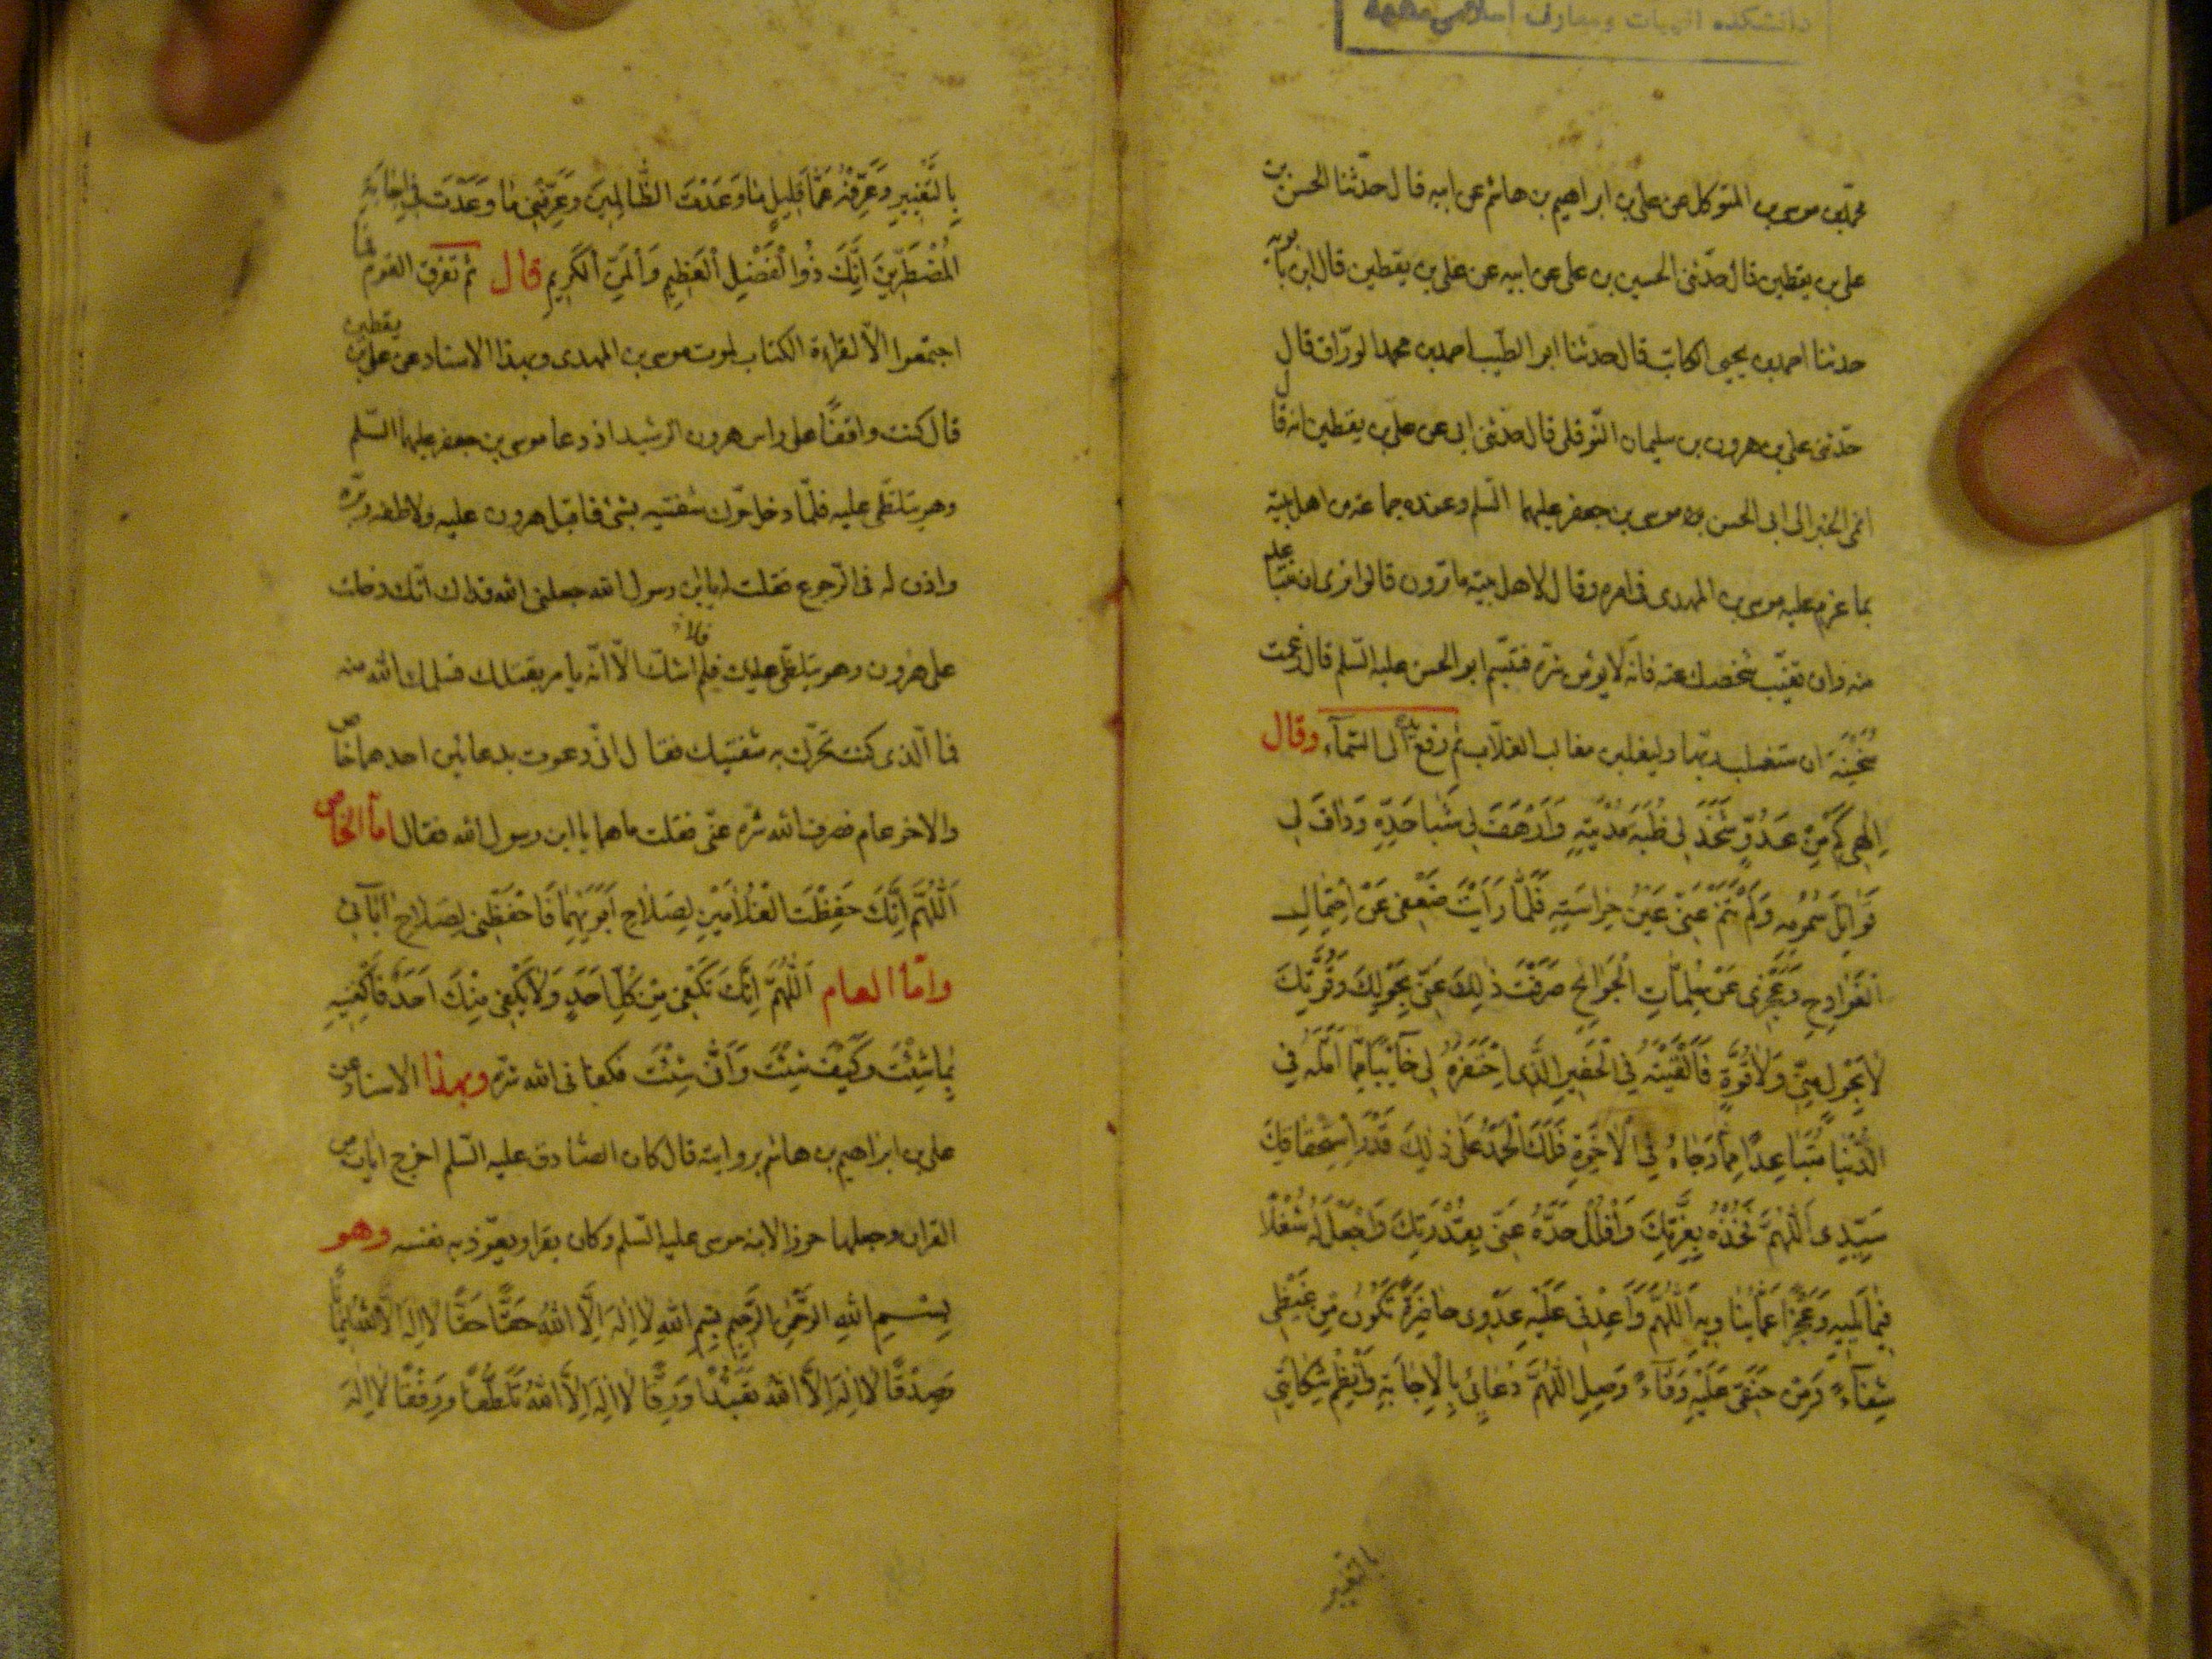 دانشکده الهیات ومعارف اسلامی مشهد
محمد بن موسی بن المتوکل عن علی بن ابراهیم بن هاشم عن ابیه قال حدّثنا الحسن بن
علی بن یقطین قال حدّثنی الحسین بن علی عن ابیه عن علی بن یقطین قال ابن بابویه
حدثنا احمد بن یحیی الکاتب قال حدثنا ابو الطیّب احمد بن محمد الورّاق قال
حدّثنی علی بن هرون بن سلیمان النّوفلی قال حدّثنی ابی عن علی بن یقطین انه قال
انمی الخبر الی ابی الحسن موسی بن جعفر علیهما السّلم وعنده جماعة من اهل بیته
بما عزم علیه موسی بن المهدی فی امره وقال لاهل بیته ما ترون قالوا نری ان تتباعد
منه وان تغیّب شخصک عنه فانّه لا یؤمن شرّه فتبسّم ابو الحسن علیه السّلم قال زعمت
سَخِینَةُ ان ستغلب ربّها ولیغلبن مغالب الغلّاب ثم رفع یده الی السّمآء وقال
اِلهِی کَمْ مِنْ عَدُوٍّ شَحَذَ لِی ظُبَةَ مُدْیَتِهِ وَاَرْهَفَ لِی شَبَا حَدِّهِ وَدَافَ لِی
قَوَاتِلَ سُمُومِهِ وَلَمْ تَنَمْ عَنِّی عَیْنُ حِرَاسَتِهِ فَلَمَّا رَاَیْتَ ضَعْفِی عَنْ اِحْتِمَالِ
الْفَوَادِحِ وَعَجْزِی عَنْ مُلِمَّاتِ الْجَوَائِحِ صَرَفْتَ ذٰلِکَ عَنِّی بِحَوْلِکَ وَقُوَّتِکَ
لَا بِحَوْلٍ مِنِّی وَلَا قُوَّةٍ فَاَلْقَیْتَهُ فِی الْحَفِیرِ الَّذِی اِحْتَفَرَهُ لِی خَآئِبًا مِمَّا اَمَّلَهُ فِی
الدُّنْیَا مُتَبَاعِدًا مِمَّا رَجَاهُ فِی الْاٰخِرَةِ فَلَکَ الْحَمْدُ عَلَی ذٰلِکَ قَدْرَ اسْتِحْقَاقِکَ
سَیِّدِی اَللّٰهُمَّ فَخُذْهُ بِعِزَّتِکَ وَافْلُلْ حَدَّهُ عَنِّی بِقُدْرَتِکَ وَاجْعَلْ لَهُ شُغْلًا
فِیمَا یَلِیهِ وَعَجْزًا عَمَّا یُنَاوِیهِ اَللّٰهُمَّ وَاَعِدْنِی عَلَیْهِ عَدْوٰی حَاضِرَةً تَکُونُ مِنْ غَیْظِی
شِفَآءً وَمِنْ حَنَقِی عَلَیْهِ وَفَآءً وَصِلِ اللّٰهُمَّ دُعَائِی بِالْاِجَابَةِ وَانْظِمْ شِکَایَتِی
بالتغییر
بِالتَّغْیِیرِ وَعَرِّفْهُ عَمَّا قَلِیلٍ مَا وَعَدْتَ الظَّالِمِینَ وَعَرِّفْنِی مَا وَعَدْتَ فِی اِجَابَةِ
الْمُضْطَرِّینَ اِنَّکَ ذُو الْفَضْلِ الْعَظِیمِ وَالْمَنِّ الْکَرِیمِ قال ثم تفرق القوم فما
اجتمعوا الّا لقراءة الکتاب بموت موسی بن المهدی وبهذا الاسناد عن علی بن یقطین
قال کنت واقفًا علی راس هرون الرشید اذ دعا موسی بن جعفر علیهما السّلم
وهو یتلظّی علیه فلمّا دخل حرّک شفتیه بشئ فاقبل هرون علیه ولاطفه وبرّه
واذن له فی الرّجوع فقلت له یا ابن رسول الله جعلنی الله فداک انّک دخلت
علی هرون وهو یتلظّی علیک فلم اشکّ الّا انّه یامر بقتلک فسلمک الله منه
فما الّذی کنت تحرّک به شفتیک فقال انّی دعوت بدعائین احدهما خاص
والاخر عام فصرف الله شرّه عنّی فقلت ما هما یا ابن رسول الله فقال امّا الخاص
اَللّٰهُمَّ اِنَّکَ حَفِظْتَ الْغُلَامَیْنِ لِصَلَاحِ اَبَوَیْهِمَا فَاحْفَظْنِی لِصَلَاحِ اٰبَآئِی
وامّا العام اَللّٰهُمَّ اِنَّکَ تَکْفِی مِنْ کُلِّ اَحَدٍ وَلَا یَکْفِی مِنْکَ اَحَدٌ فَاکْفِنِیهِ
بِمَا شِئْتَ وَکَیْفَ شِئْتَ وَاَنّٰی شِئْتَ فکفانی الله شرّه وبهذا الاسناد عن
علی بن ابراهیم بن هاشم بروایته قال کان الصّادق علیه السّلم اخرج ایات من
القران وجعلها حرزا لابنه موسی علیه السّلم وکان یقرا ویعوّذ به نفسه وهو
بِسْمِ اللهِ الرَّحْمٰنِ الرَّحِیمِ بِسْمِ اللهِ لَا اِلٰهَ اِلَّا اللهُ حَقًّا حَقًّا لَا اِلٰهَ اِلَّا اللهُ اِیمَانًا
وَصِدْقًا لَا اِلٰهَ اِلَّا اللهُ تَعَبُّدًا وَرِقًّا لَا اِلٰهَ اِلَّا اللهُ تَلَطُّفًا وَرِفْقًا لَا اِلٰهَ